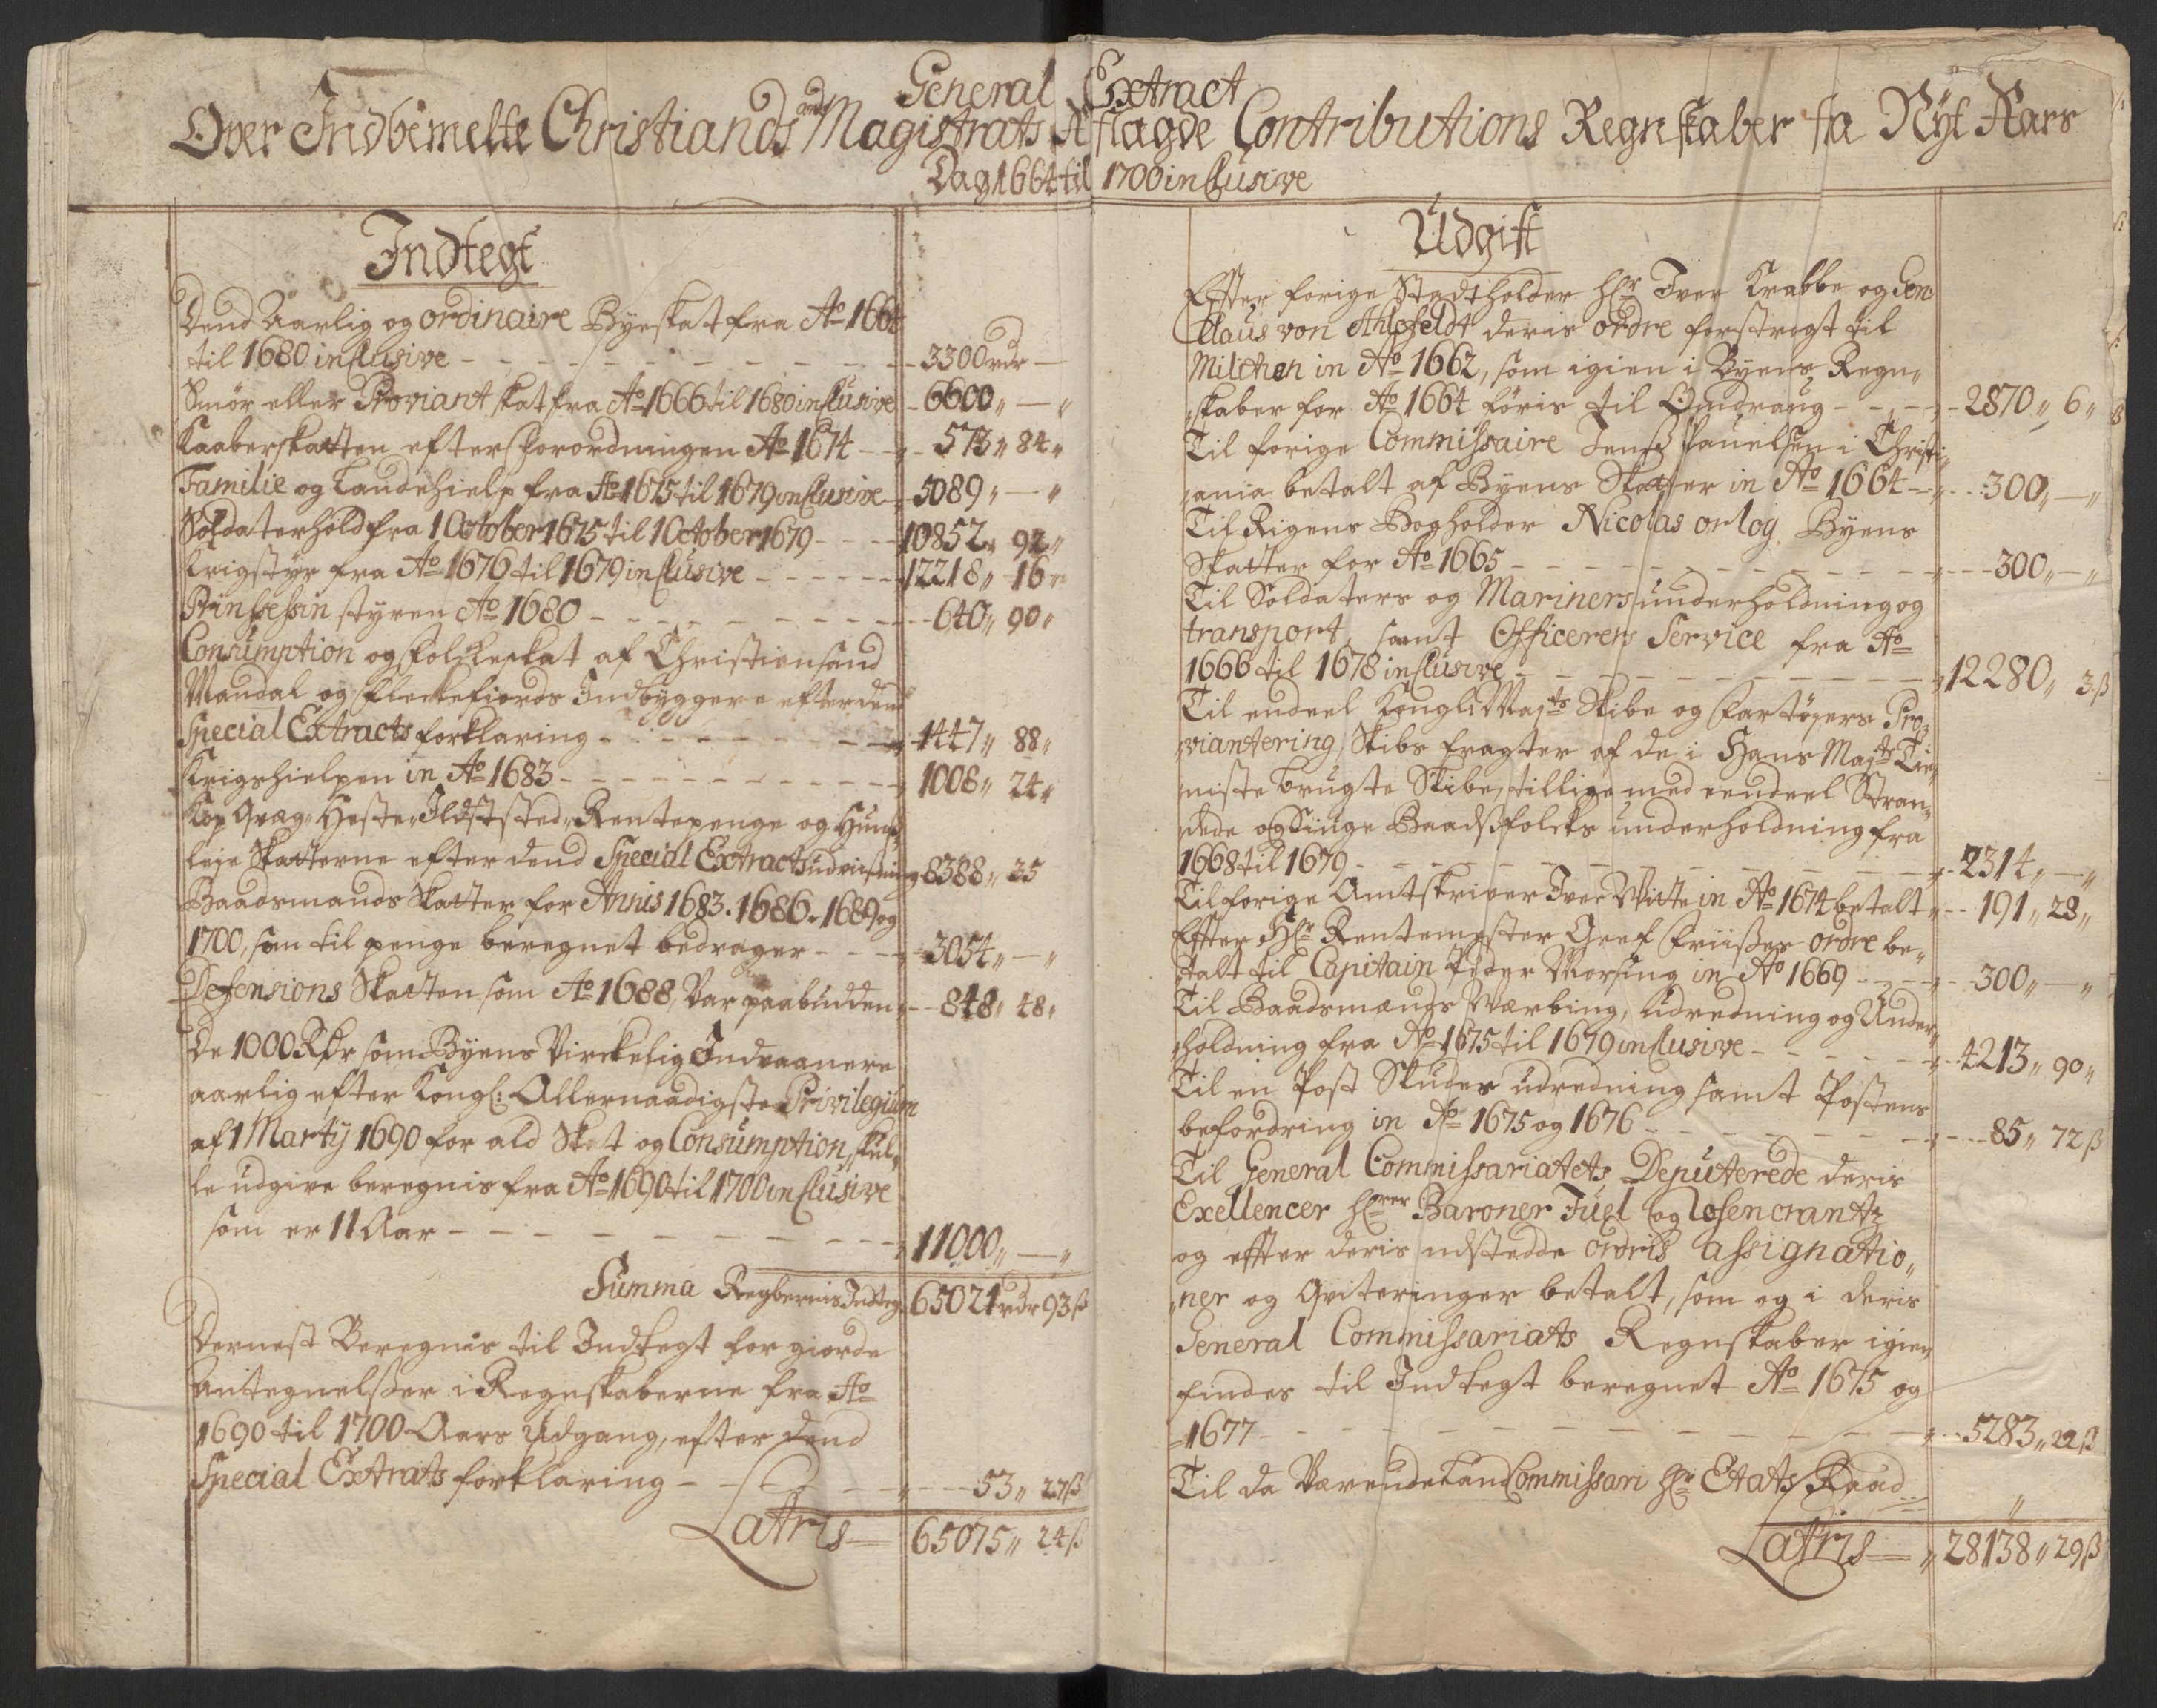 General Extract
Over Indbemelte Christiandsands Magistrats Aflagde Contributions Regnskaber fra Nyt Aars
Dag 1664 til 1700 inclusive
Indtegt
Dend Aarlig og ordinaire Byeskat fra Ao 1664
til 1680 inclusive - - - 3300 rdr —
Smör eller Proviant skat fra Ao 1666 til 1680 inclusive - 6600 „ — „
Kaaberskatten efter Forordningen Ao 1674 - - 573 „ 84 „
Familie og Landehielp fra Ao 1675 til 1679 inclusive - 5089 „ — „
Soldaterhold fra 1 October 1675 til 1 October 1679 - - - 10852 „ 92 „
Krigstyr fra Ao 1676 til 1679 inclusive - - - 12218 „ 16 „
Prinsessin styren Ao 1680 - - - 640 „ 90 „
Consumption og Folckeskat af Christiansand
Mandal og Fleckefiords Indbyggere efter dend
Special Extracts forklaring - - - 1447 „ 88 „
Krigshielpen in Ao 1683 - - - 1008 „ 24 „
Kop Qvæg- Heste- Ildststed- Rentepenge og Huus
leje Skatterne efter dend Special Extracts udviisning 8388 „ 35
Baadsmands Skatter for Annis 1683. 1686. 1689 og
1700, som til penge beregnet bedrager - - - 3054 „ — „
Defensions Skatten som Ao 1688, Var paabudden - - 848 „ 48 „
De 1000 Rdr som Byens Virckelig Indvaanere
aarlig efter Kongl: Allernaadigste Privilegium
af 1 Martij 1690 for ald Skat og Consumption, skul„
le udgive beregnis fra Ao 1690 til 1700 inclusive
som er 11 Aar - - - 11000 „ — „
Summa Indteg 65021 rdr 93 ß
Dernest Beregnis til Indtegt for giorde
Antegnelsser i Regnskaberne fra Ao
1690 til 1700 Aars Udgang, efter dend
Special Extrats forklaring - - - 53 „ 27 ß
Latris 65075 „ 24 ß
Udgift
Efter forige Stadtholder Hr Iver Krabbe og Gen
Claus von Ahlefeldt deris ordre forstragt til
Militien in Ao 1662, som igien i Byens Regn„
skaber for Ao 1664 föris til Omdraug - - - 2870 „ 6 „
Til forige Commissaire Jens Pauelsen i Christi„
ania betalt af Byens Skatter in Ao 1664 - - 300 „ — „
Til Rigens Bogholder Nicolas orlog Byens
Skatter for Ao 1665 - - - 300 „ — „
Til Soldaters og Mariners underholdning og
transport, samt Officerers Service fra Ao
1666 til 1678 inclusive - - - 12280 „ 3 ß
Til endeel Kongl: Majts Skibe og Fartöyers Pro„
viantering, Skibs fragter af de i Hans Majts Tie„
niste brugte Skibe, tillige med eendeel Stran„
dede og Siuge Baadsfolcks underholdning fra
1668 til 1679 - - - 2314 „ — „
Til forige Amtskriver Iver Witte in Ao 1674 betalt - - 191 „ 28 „
Efter Hr Rentemester Gref Friisses ordre be„
talt til Capitain Peder Morsing in Ao 1669 - - - 300 „ — „
Til Baadsmænds Værbing, Udredning og Under„
holdning fra Ao 1675 til 1679 inclusive - - - 4213 „ 90 „
Til en Post Skudes udredning samt Postens
befordring in Ao 1675 og 1676 - - - 85 „ 72 ß
Til General Commissariatets Deputerede deris
Exellencer Hrer Baroner Juel og Rosencrantz
og efter deris udstedde ordris assignatio„
ner og Qviteringer betalt, som og i deris
General Commissariats Regnskaber igien
findes til Indtegt beregnet Ao 1675 og
1677 - - - 5283 „ 22 ß
Til da Værende Land Commissari Hr Etats Raad
Latris 28138 „ 29 ß